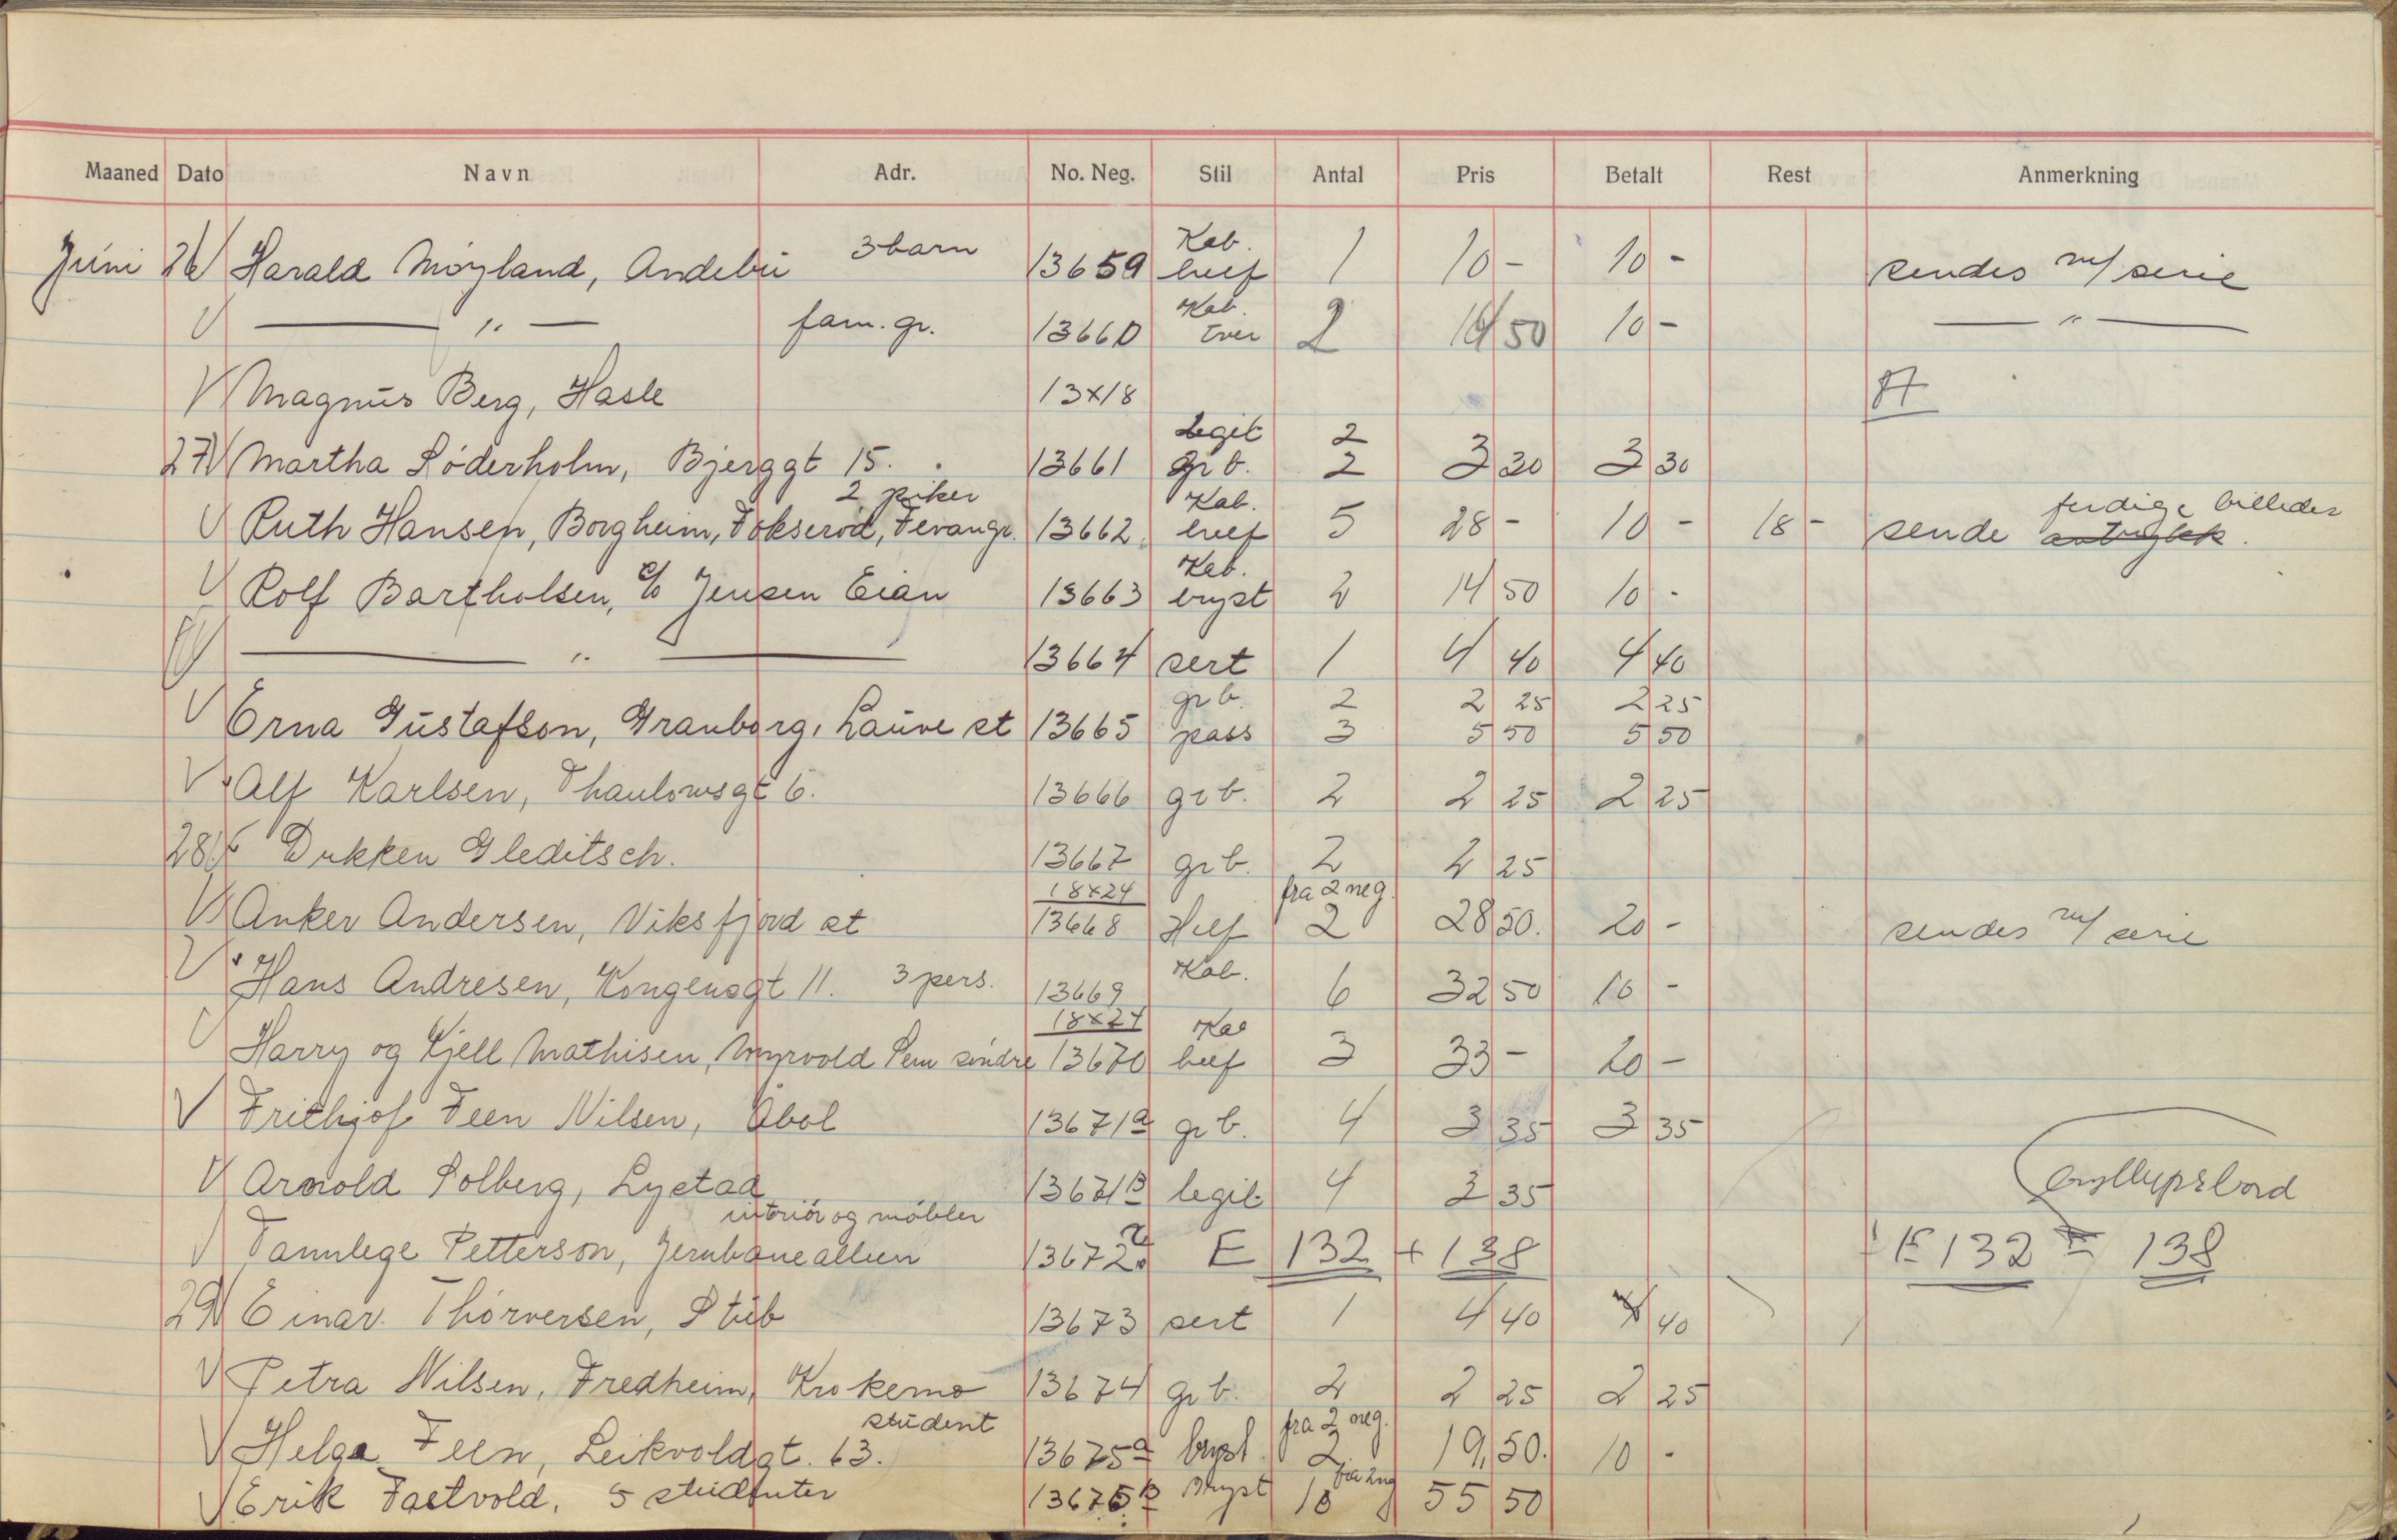 Maaned Dato Navn Adr. No. Neg. Stil Antal Pris Betalt Rest Anmerkning
Juni 26 Harald Møyland, Andebu 3 barn 13659 Kab. helf 1 10 - 10 - sendes m/ serie
— " — fam. gr. 13660 Kab. tver 2 14 50 10 - — " —
Magnus Berg, Hasle 13x18
27 Martha Söderholm, Bjerggt 15. 13661 Legit 2 gr b. 2 3 30 3 30
Ruth Hansen, Borgheim, Fokserød, Fevangr. 2 piker 13662 Kab. helf 5 28 - 10 - 18 - sende ferdige billeder
Rolf Bartholsen, c/o Jensen Eian 13663 Kab. bryst 2 14 50 10 -
— " — 13664 sert 1 4 40 4 40
gr b. 2 2 25 2 25
Erna Gustafson, Granborg, Lauve st 13665 pass 3 5 50 5 50
Alf Karlsen, Thaulowsgt 6. 13666 gr b. 2 2 25 2 25
28 Dukken Gleditsch. 13667 gr b. 2 2 25
18x24 fra 2 neg.
Anker Andersen, Viksfjord st 13668 Helf 2 28 50. 20 - sendes m/ serie
Hans Andresen, Kongensgt 11. 3 pers. 13669 Kab. 6 32 50 10 -
18x24 Kab
Harry og Kjell Mathisen, Myrvold Sem søndre 13670 helf 3 33 - 20 -
Frithjof Feen Nilsen, Åbol 13671a gr b. 4 3 35 3 35
Arnold Solberg, Lystad 13671B legit 4 3 35 bryllupsbord
interiør og møbler
Tannlege Petterson, Jernbanealleen 13672 E 132 + 138 E 132 138
29 Einar Thorversen, Stub 13673 sert 1 4 40 4 40
Petra Nilsen, Fredheim, Krokemo 13674 gr b. 2 2 25 2 25
student fra 2 neg.
Helga Feen, Leikvoldgt. 63. 13675a bryst 2 19,50. 10 -
Erik Fastvold, 5 studenter 13675B Bryst 10 fra 2 neg 55 50